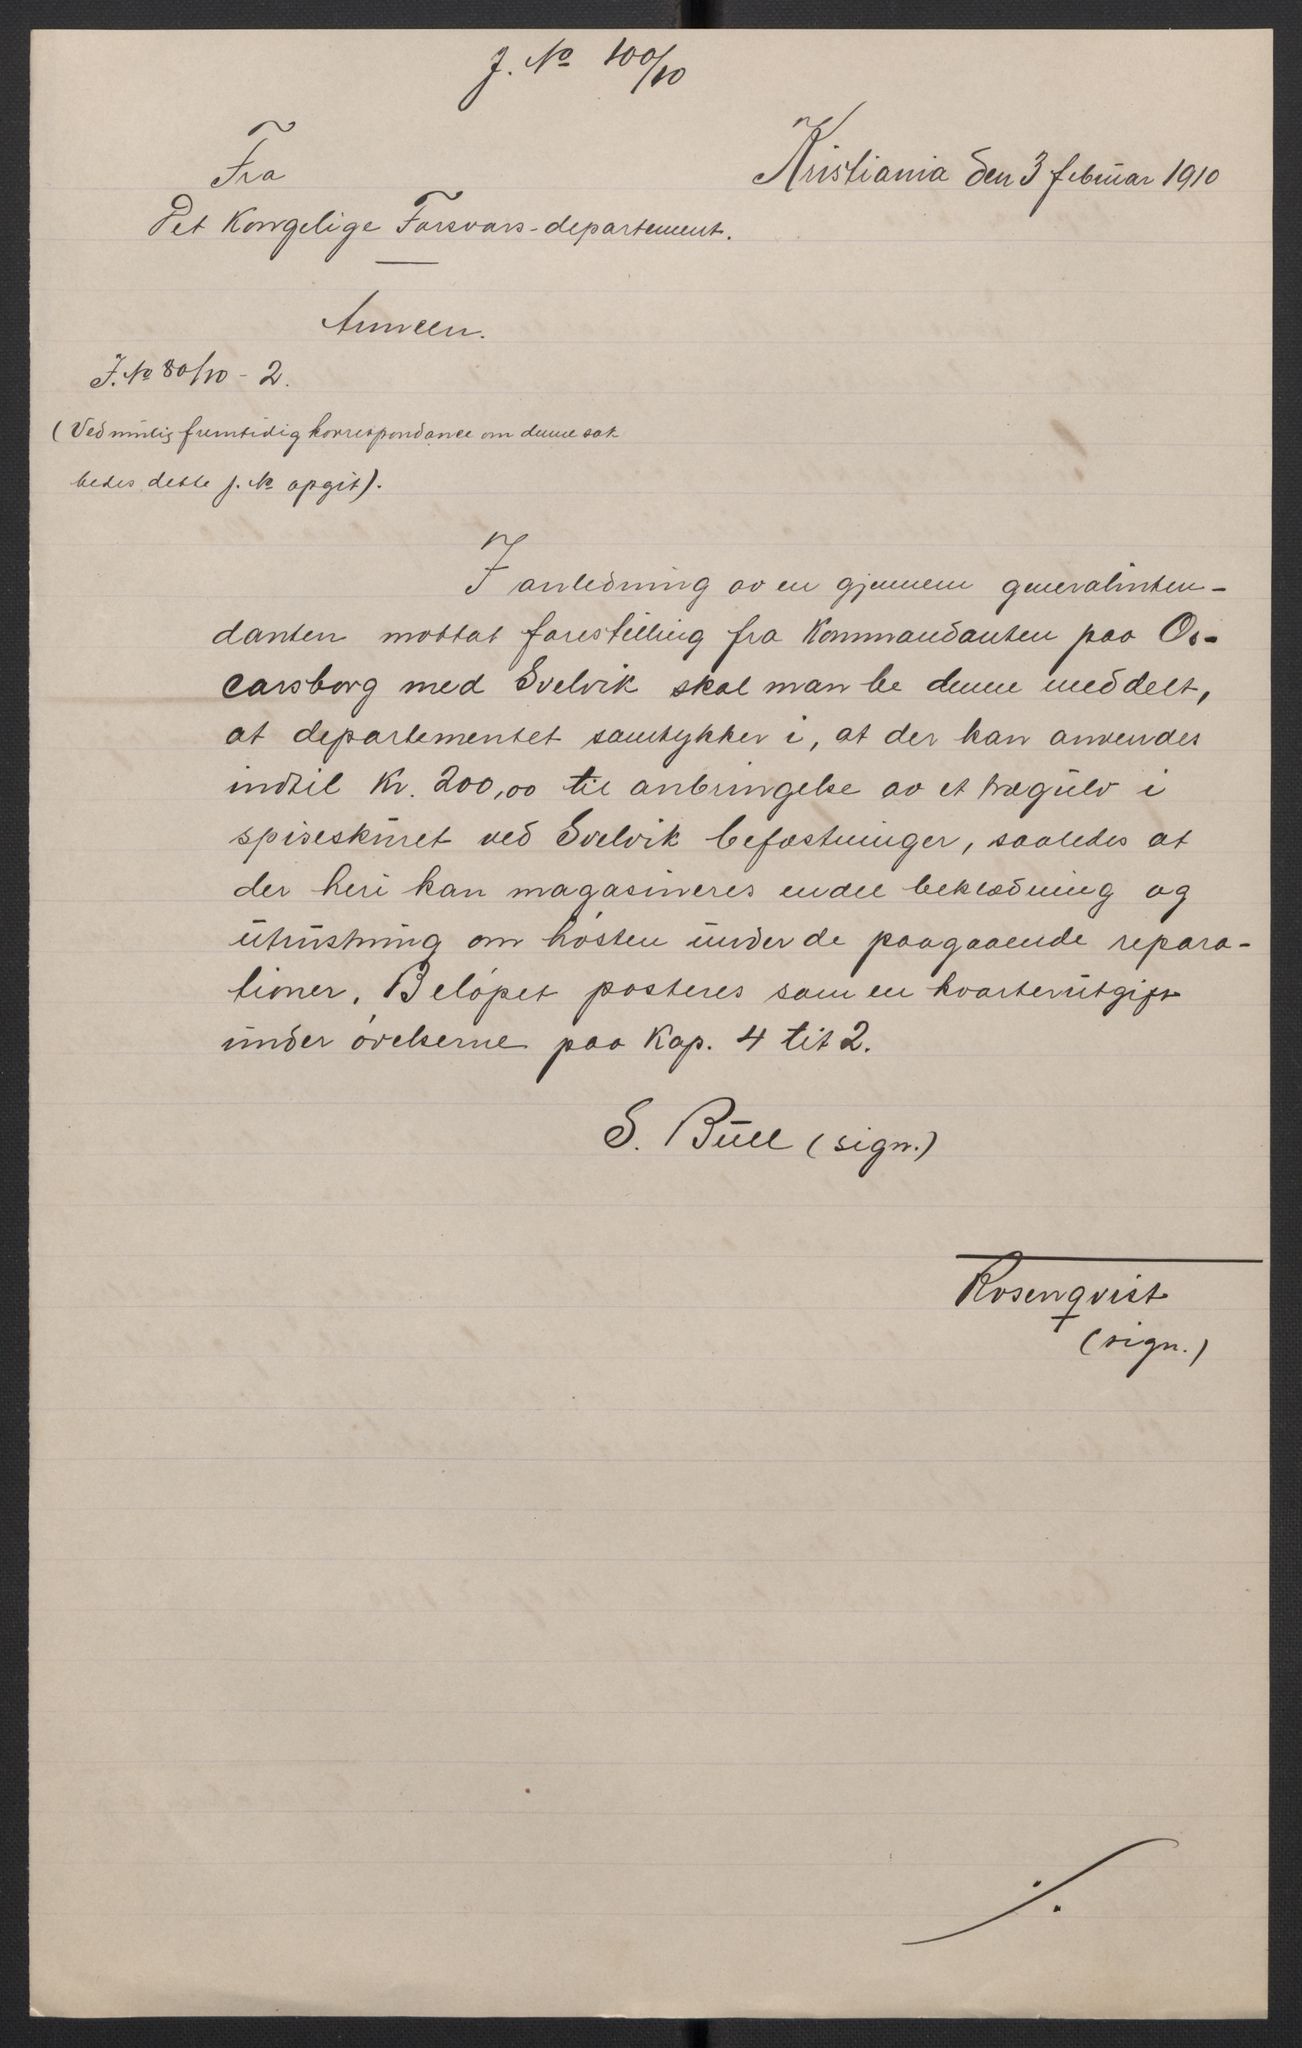 J. No 100/10
Kristiania den 3 februar 1910
Fra
Det Kongelige Forsvars-departement.
Armeen.
J. No 80/10 - 2.
(Ved mulig fremtidig korrespondance om denne sak
bedes dette j. No opgit).
I anledning av en gjennem generalinten-
danten mottat forestilling fra Kommandanten paa Os-
carsborg med Svelvik skal man be denne meddelt,
at departementet samtykker i, at der kan anvendes
indtil Kr. 200,00 til anbringelse av et trægulv i
spiseskuret ved Svelvik befæstninger, saaledes at
der heri kan magasineres endel beklædning og
utrustning om hösten under de paagaaende repara-
tioner. Belöpet posteres som en kvarterutgift
under övelserne paa Kap. 4 tit 2.
S. Bull (sign.)
Rosenqvist
(sign.)